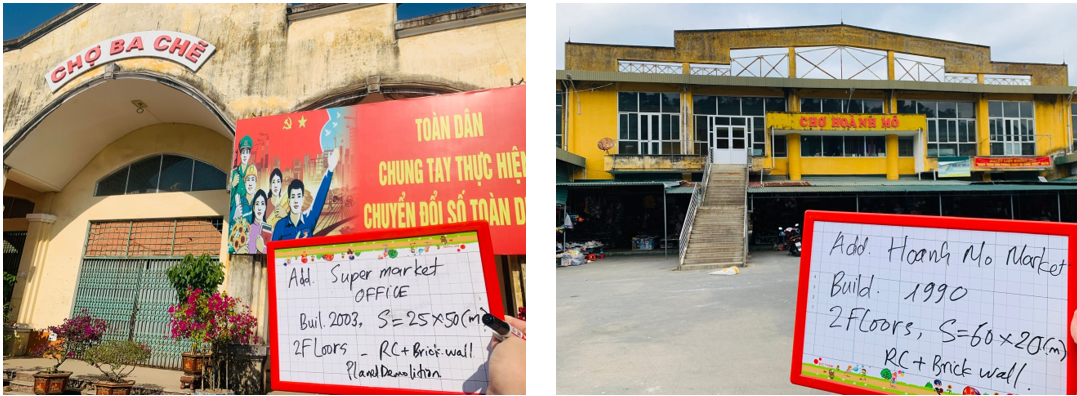 CHỢ BA CHẼ
TOÀN DÂN
CHUNG TAY THỰC HIỆN
CHUYỂN ĐỔI SỐ TOÀN D
Add. Super market
OFFICE
Buil. 2003, S=25×50(m)
2Floors - RC+Brick-wall
Planed Demolition
CHỢ HOÀNH MÔ
Add. Hoanh Mo Market
Build. 1990
2Floors, S=60×20(m)
RC+Brick wall.